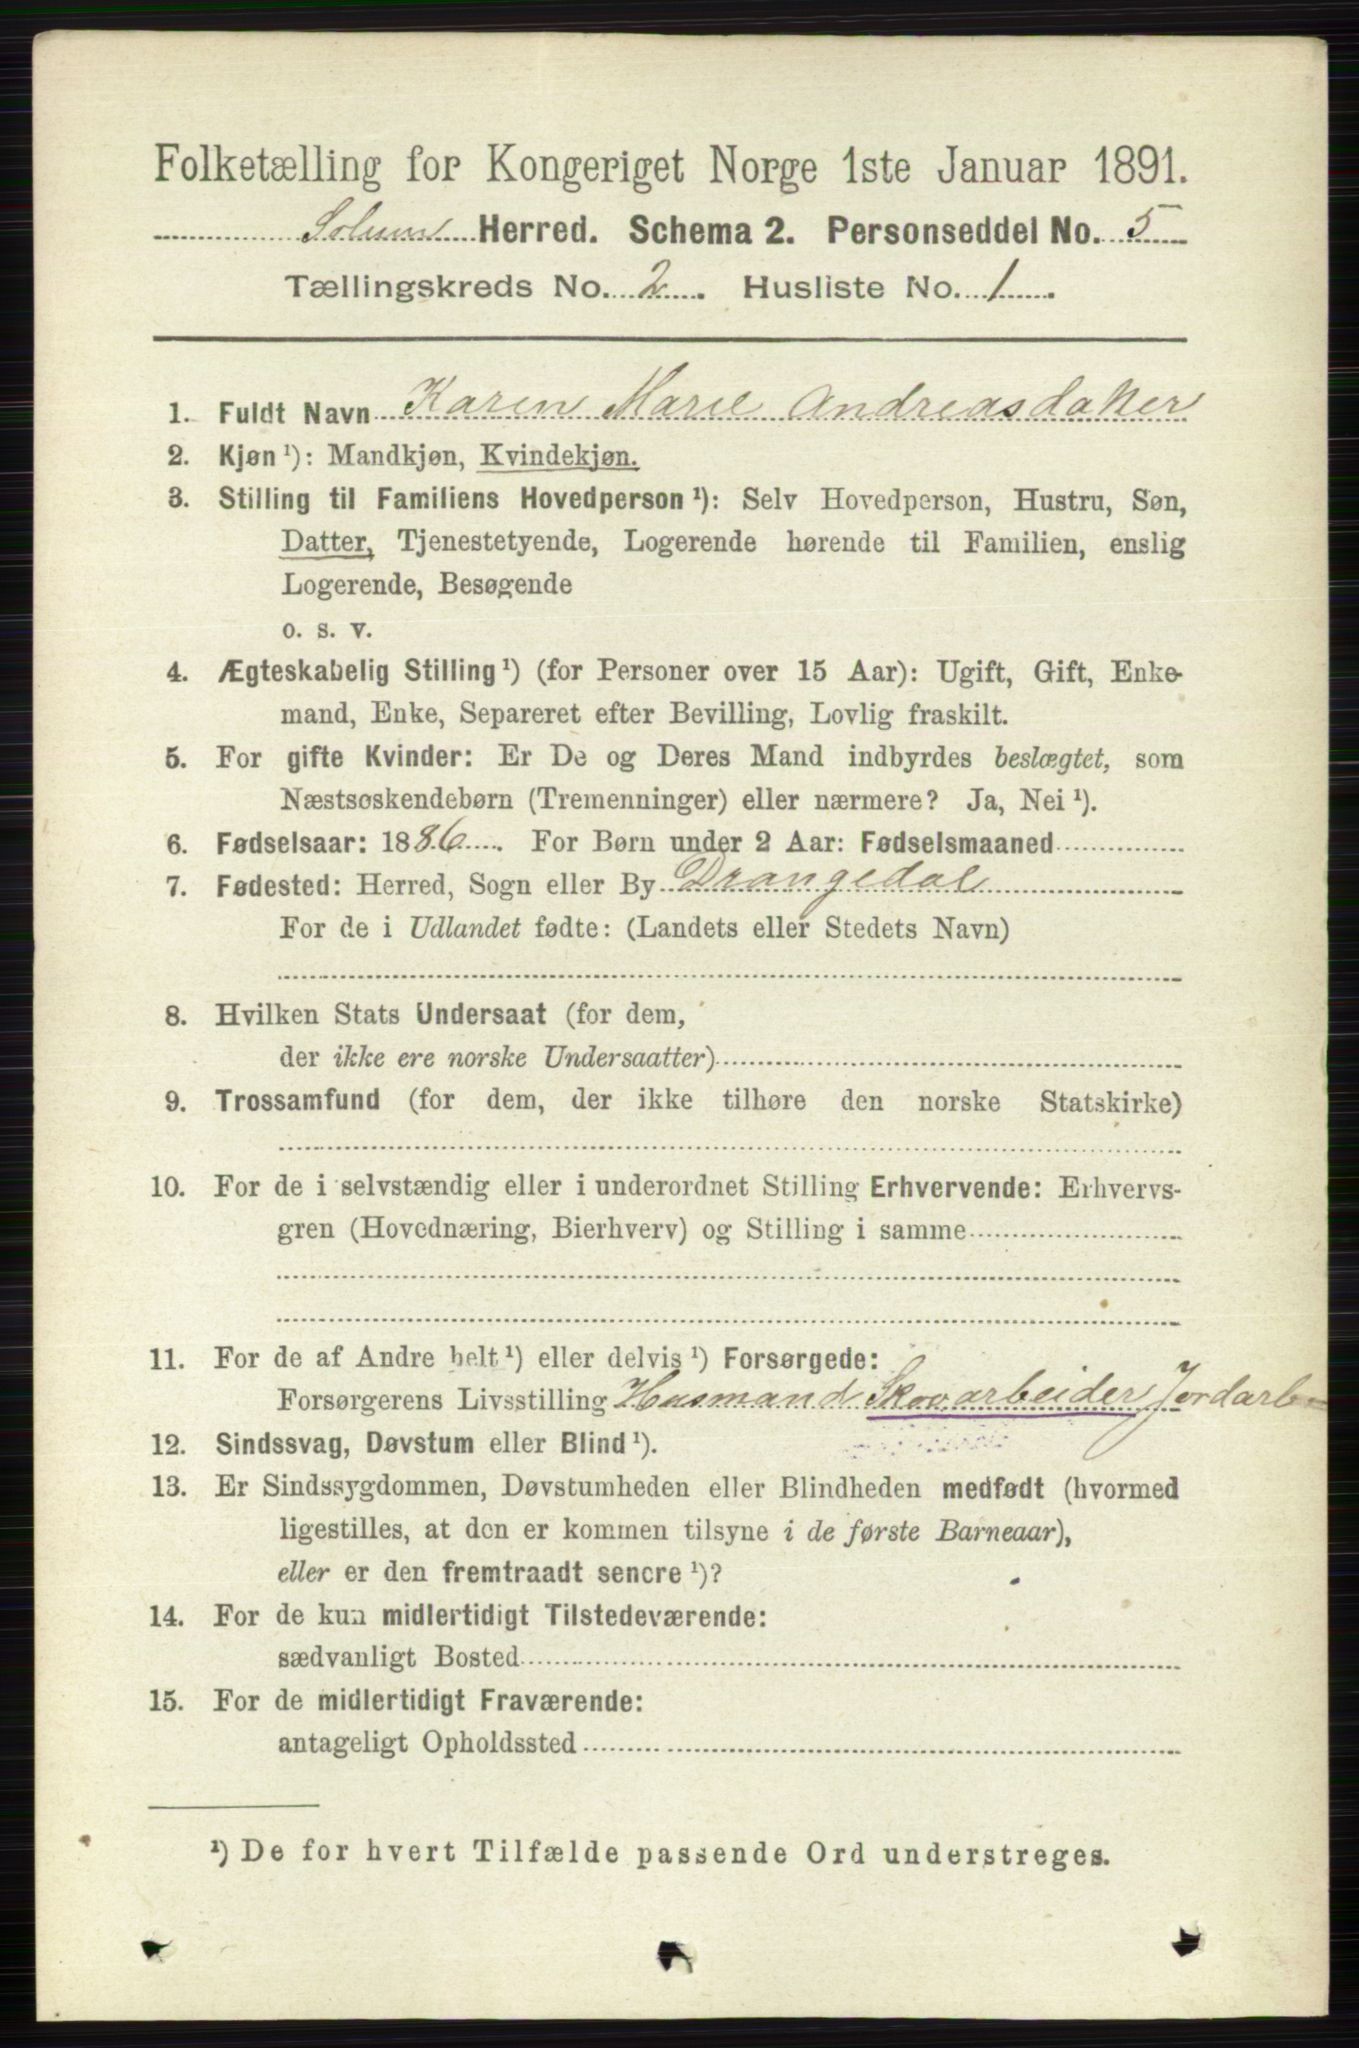 Folketælling for Kongeriget Norge 1ste Januar 1891.
Solum Herred. Schema 2. Personseddel No. 5
Tællingskreds No. 2. Husliste No. 1.
1. Fuldt Navn Karen Marie Andreasdatter
2. Kjøn ¹): Mandkjøn, Kvindekjøn.
3. Stilling til Familiens Hovedperson ¹): Selv Hovedperson, Hustru, Søn,
Datter, Tjenestetyende, Logerende hørende til Familien, enslig
Logerende, Besøgende
o. s. v.
4. Ægteskabelig Stilling ¹) (for Personer over 15 Aar): Ugift, Gift, Enke-
mand, Enke, Separeret efter Bevilling, Lovlig fraskilt.
5. For gifte Kvinder: Er De og Deres Mand indbyrdes beslægtet, som
Næstsøskendebørn (Tremenninger) eller nærmere? Ja, Nei ¹).
6. Fødselsaar: 1886. For Børn under 2 Aar: Fødselsmaaned
7. Fødested: Herred, Sogn eller By Drangedal
For de i Udlandet fødte: (Landets eller Stedets Navn)
8. Hvilken Stats Undersaat (for dem,
der ikke ere norske Undersaatter)
9. Trossamfund (for dem, der ikke tilhøre den norske Statskirke)
10. For de i selvstændig eller i underordnet Stilling Erhvervende: Erhvervs-
gren (Hovednæring, Bierhverv) og Stilling i samme
11. For de af Andre helt ¹) eller delvis ¹) Forsørgede:
Forsørgerens Livsstilling Husmand Skovarbeider Jordarb
12. Sindssvag, Døvstum eller Blind ¹).
13. Er Sindssygdommen, Døvstumheden eller Blindheden medfødt (hvormed
ligestilles, at den er kommen tilsyne i de første Barneaar),
eller er den fremtraadt senere ¹)?
14. For de kun midlertidigt Tilstedeværende:
sædvanligt Bosted
15. For de midlertidigt Fraværende:
antageligt Opholdssted
¹) De for hvert Tilfælde passende Ord understreges.